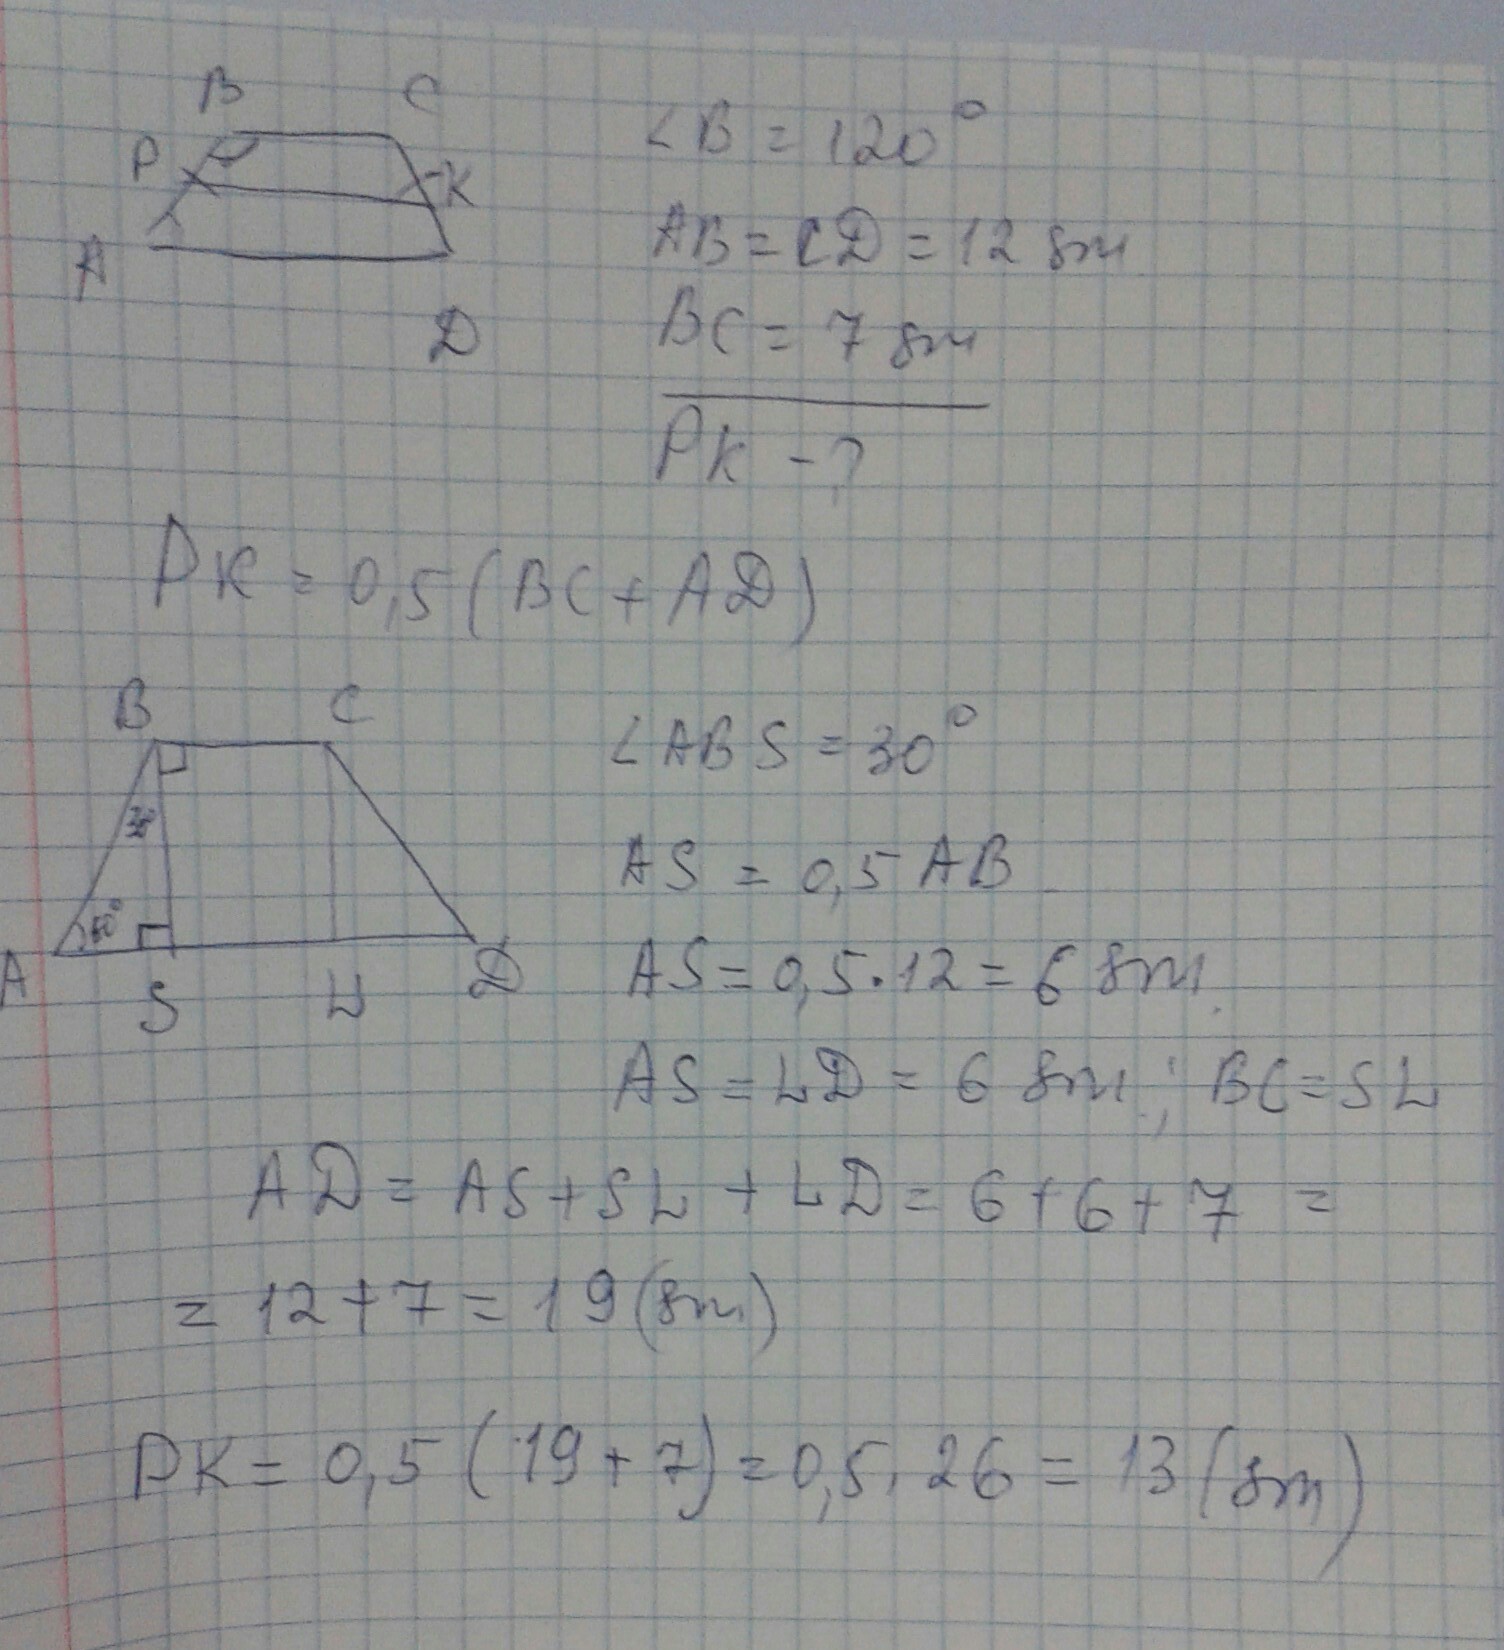 B C
P K
A
D
∠B = 120°
AB = CD = 12 sm
BC = 7 sm
PK - ?
PK = 0,5 (BC + AD)
B C
30°
60°
A S L D
∠ABS = 30°
AS = 0,5 AB
AS = 0,5 · 12 = 6 sm.
AS = LD = 6 sm ; BC = SL
AD = AS + SL + LD = 6 + 6 + 7 =
= 12 + 7 = 19 (sm)
PK = 0,5 (19 + 7) = 0,5 · 26 = 13 (sm)